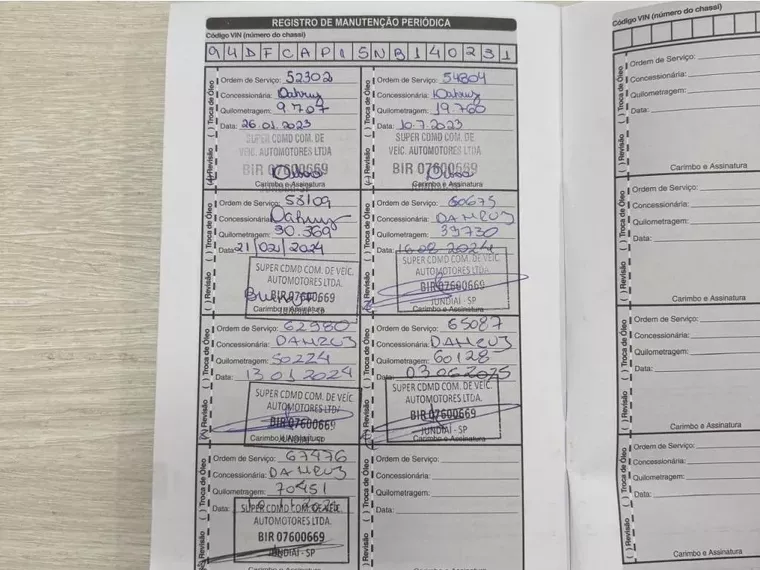 REGISTRO DE MANUTENÇÃO PERIÓDICA
Código VIN (número do chassi)
94DFCAP15NB140231
( ) Revisão ( ) Troca de Óleo
Ordem de Serviço: 52302
Concessionária: Dahruj
Quilometragem: 9.707
Data: 26.01.2023
SUPER CDMD COM. DE
VEÍC. AUTOMOTORES LTDA
BIR 07600669
Carimbo e Assinatura
( ) Revisão ( ) Troca de Óleo
Ordem de Serviço: 54804
Concessionária: Dahruj
Quilometragem: 19.760
Data: 10.7.2023
SUPER CDMD COM. DE
VEÍC. AUTOMOTORES LTDA
BIR 07600669
Carimbo e Assinatura
( ) Revisão ( ) Troca de Óleo
Ordem de Serviço: 58109
Concessionária: Dahruj
Quilometragem: 30.369
Data: 21/02/2024
SUPER CDMD COM. DE VEÍC.
AUTOMOTORES LTDA.
BIR 07600669
JUNDIAÍ - SP
Carimbo e Assinatura
( ) Revisão ( ) Troca de Óleo
Ordem de Serviço: 60675
Concessionária: DAHRUJ
Quilometragem: 39730
Data: 16.08.2024
SUPER CDMD COM. DE VEÍC.
AUTOMOTORES LTDA.
BIR 07600669
JUNDIAÍ - SP
( ) Revisão ( ) Troca de Óleo
Ordem de Serviço: 62980
Concessionária: DAHRUJ
Quilometragem: 50224
Data: 13 01 2024
SUPER CDMD COM. DE VEÍC.
AUTOMOTORES LTDA
BIR 07600669
JUNDIAÍ - SP
Carimbo e Assinatura
( ) Revisão ( ) Troca de Óleo
Ordem de Serviço: 65087
Concessionária: DAHRUJ
Quilometragem: 60128
Data: 03.06.2025
SUPER CDMD COM. DE VEÍC.
AUTOMOTORES LTDA.
BIR 07600669
JUNDIAÍ - SP
Carimbo e Assinatura
( ) Revisão ( ) Troca de Óleo
Ordem de Serviço: 67476
Concessionária: DAHRUJ
Quilometragem: 70451
Data:
SUPER CDMD COM. DE VEÍC.
AUTOMOTORES LTDA.
BIR 07600669
JUNDIAÍ - SP
( ) Revisão ( ) Troca de Óleo
Ordem de Serviço:
Concessionária:
Quilometragem:
Data:
Carimbo e Assinatura
Código VIN (número do chassi)
( ) Revisão ( ) Troca de Óleo
Ordem de Serviço:
Concessionária:
Quilometragem:
Data:
Carimbo e Assinatura
( ) Revisão ( ) Troca de Óleo
Ordem de Serviço:
Concessionária:
Quilometragem:
Data:
Carimbo e Assinatura
( ) Revisão ( ) Troca de Óleo
Ordem de Serviço:
Concessionária:
Quilometragem:
Data:
Carimbo e Assinatura
( ) Revisão ( ) Troca de Óleo
Ordem de Serviço:
Concessionária:
Quilometragem:
Data:
Carimbo e Assinatura